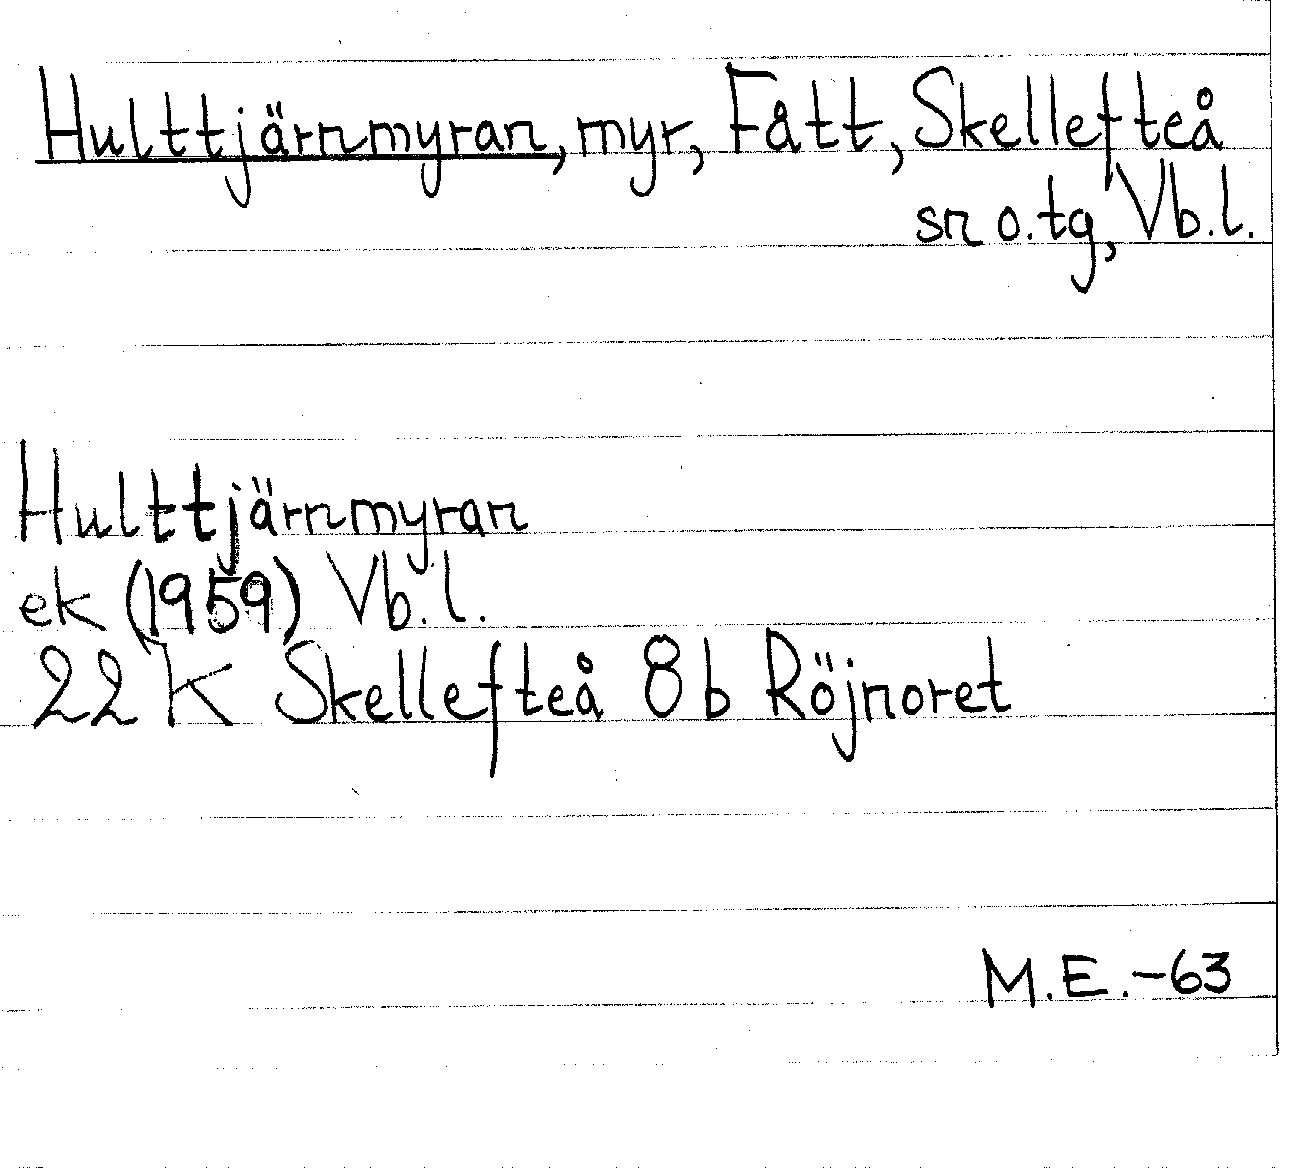 Hulttjärnmyran, myr, Fått, Skellefteå
sn o. tg, Vb.l.
Hulttjärnmyran
ek (1959) Vb.l.
22 K Skellefteå 8 b Röjnoret
M.E.-63